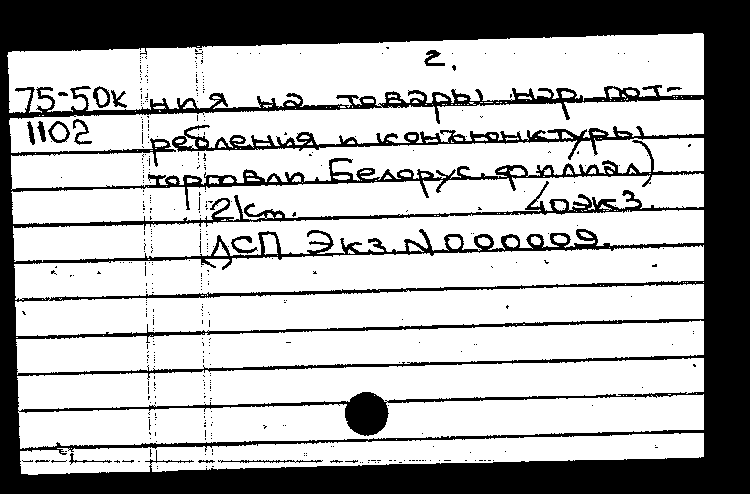 2.
75-50к ния на товары нар. пот-
1102 ребления и конъюнктуры
торговли. Белорус. филиал)
21 см. 40экз.
ДСП. Экз. N000009.